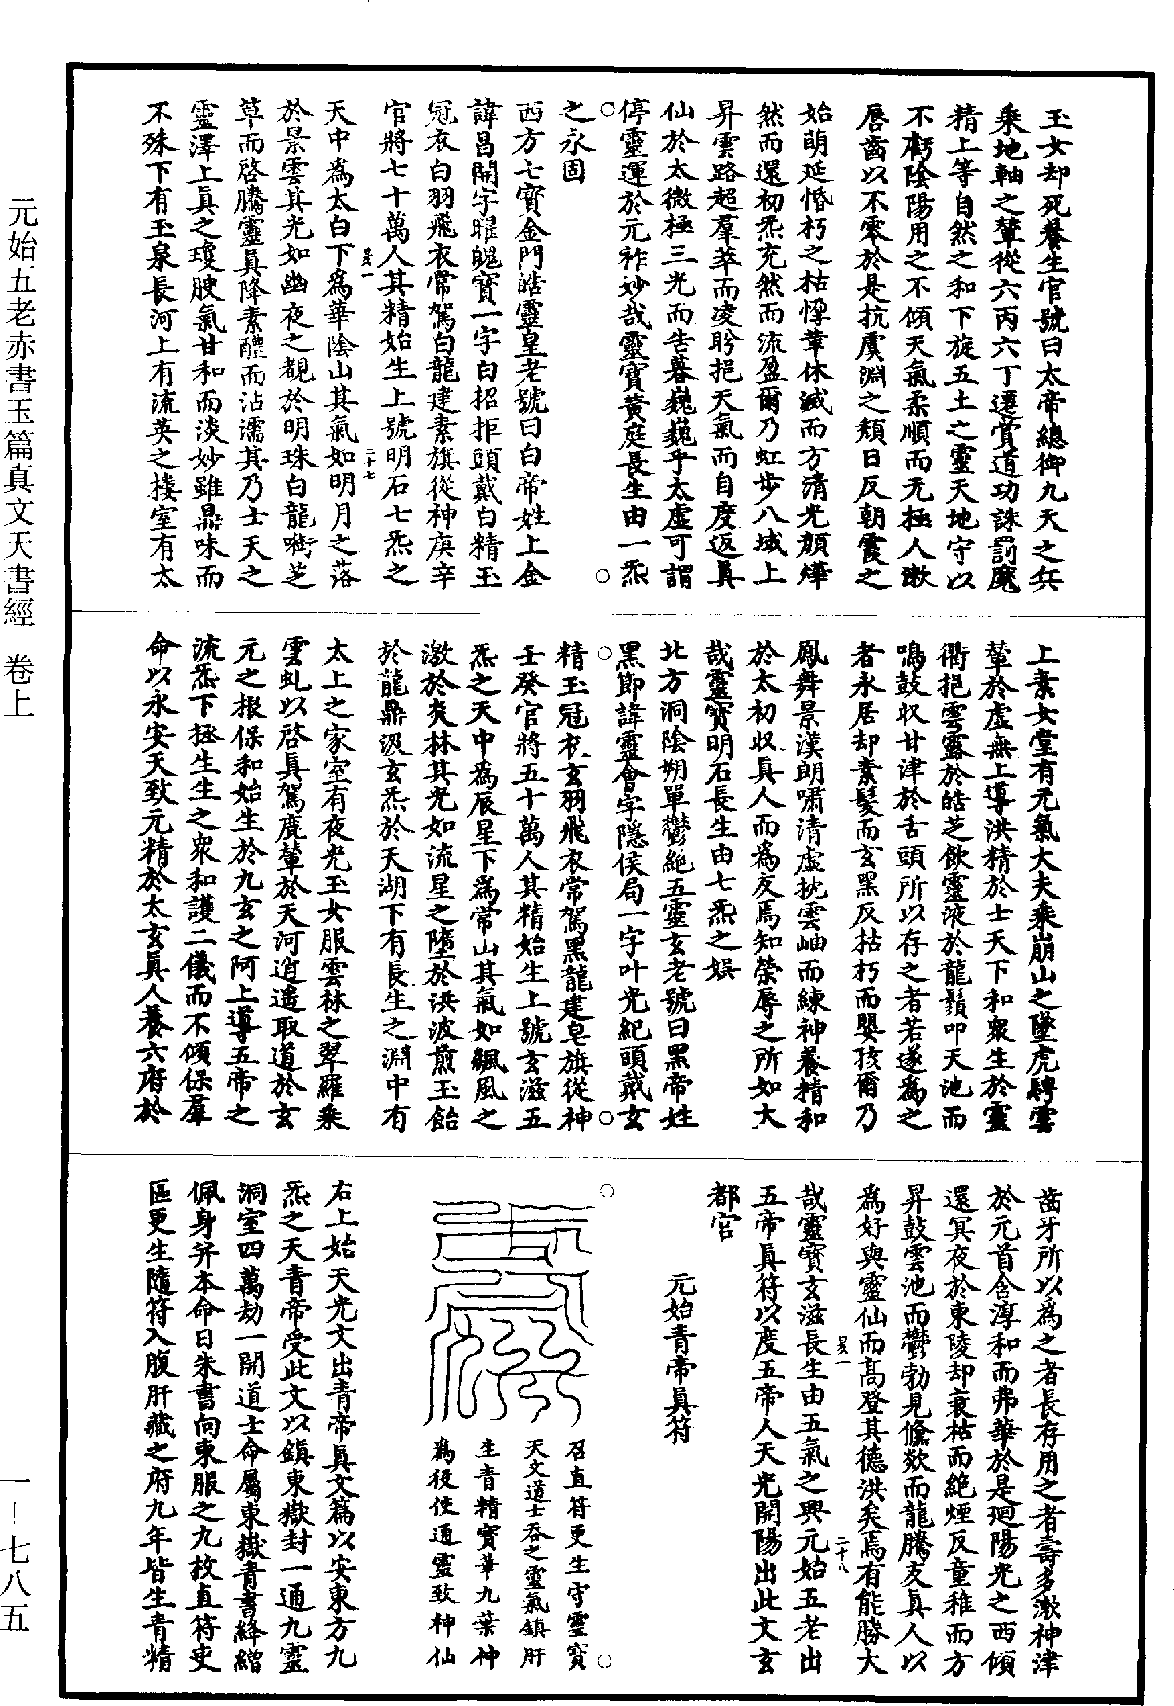 元始五老赤書玉篇真文天書經 卷上
一—七八五
玉女却死養生官號曰太帝總御九天之兵
乘地軸之輦從六丙六丁還賞道功誅罰魔
精上等自然之和下旋五土之靈天地守以
不虧陰陽用之不傾天氣柔順而无極人漱
唇齒以不零於是抗虞淵之頹日反朝霞之
始萌延惛朽之枯悴華休滅而方清光顏煒
然而還初炁充然而流盈爾乃虹步八域上
昇雲路超羣萃而凌盻挹天氣而自度返真
仙於太微極三光而告暮巍巍乎太虛可謂
停靈運於元祚妙哉靈寶黃庭長生由一炁
之永固
西方七寶金門皓靈皇老號曰白帝姓上金
諱昌開字曜魄寶一字白招拒頭戴白精玉
冠衣白羽飛衣常駕白龍建素旗從神庚辛
官將七十萬人其精始生上號明石七炁之
天中為太白下為華陰山其氣如明月之落
於景雲其光如幽夜之覩於明珠白龍嘶芝
草而啓騰靈真降素醴而沾濡其乃士天之
靈澤上真之瓊腴氣甘和而淡妙雖鼎味而
不殊下有玉泉長河上有流英之摟室有太
上素女堂有元氣大夫乘崩山之墜虎騁雲
輦於虛無上導洪精於士天下和衆生於靈
衢挹雲露於皓芝飲靈液於龍鬚叩天池而
鳴鼓収甘津於舌頭所以存之者若遂為之
者永居却素髮而玄黑反枯朽而嬰孩爾乃
鳳舞景漢朗嘯清虛枕雲岫而練神養精和
於太初収真人而為友焉知榮辱之所如大
哉靈寶明石長生由七炁之娱
北方洞陰朔單鬱絶五靈玄老號曰黑帝姓
黑節諱靈會字隱侯局一字叶光紀頭戴玄
精玉冠衣玄羽飛衣常駕黑龍建皂旗從神
壬癸官將五十萬人其精始生上號玄滋五
炁之天中為辰星下為常山其氣如飆風之
激於炎林其光如流星之墮於洪波煎玉飴
於龍鼎汲玄炁於天湖下有長生之淵中有
太上之家室有夜光玉女服雲林之翠羅乘
雲虬以啓真駕鹿輦於天河逍遥取道於玄
元之根保和始生於九玄之阿上導五帝之
流炁下拯生生之衆和護二儀而不傾保羣
命以永安天致元精於太玄真人養六府於
齒牙所以為之者長存用之者壽多漱神津
於元首含淳和而弗華於是廻陽光之西傾
還冥夜於東陵却衰枯而絶煙反童稚而方
昇鼓雲池而鬱勃見儵欻而龍騰友真人以
為好與靈仙而髙登其德洪矣焉有能勝大
哉靈寶玄滋長生由五氣之興元始五老出
五帝真符以度五帝人天光開陽出此文玄
都宫
元始青帝真符
召直符更生守靈寶
天文道士吞之靈氣鎮肝
生青精寶華九葉神
為役使通靈致神仙
右上始天光文出青帝真文篇以安東方九
炁之天青帝受此文以鎮東嶽封一通九靈
洞室四萬劫一開道士命屬東嶽青書絳繒
佩身并本命日朱書向東服之九枚直符吏
區更生隨符入腹肝藏之府九年皆生青精